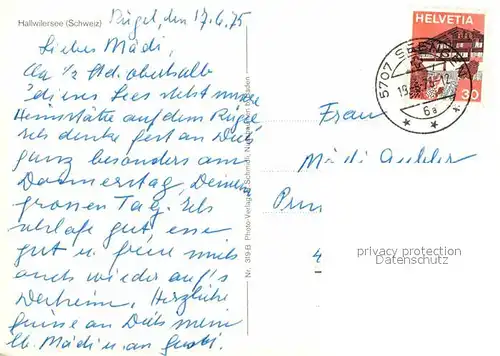 Hallwilersee (Schweiz)
Rügel, den 17.6.75
Liebes Mädi,
Ca 1/2 Std. oberhalb
dieses Sees steht unsere
Heimstätte auf dem Rügel
Ich denke fest an Dich
ganz besonders am
Donnerstag, Deinem
grossen Tag. Ich
schlafe gut, esse
gut u. freue mich
auch wieder auf's
Herzliche
Grüsse an Dich mein
lb. Mädi u. an
Nr. 319-B Photo-Verlag
HELVETIA
30
5707
6a
Frau
Mädi
4
privacy protection
Datenschutz